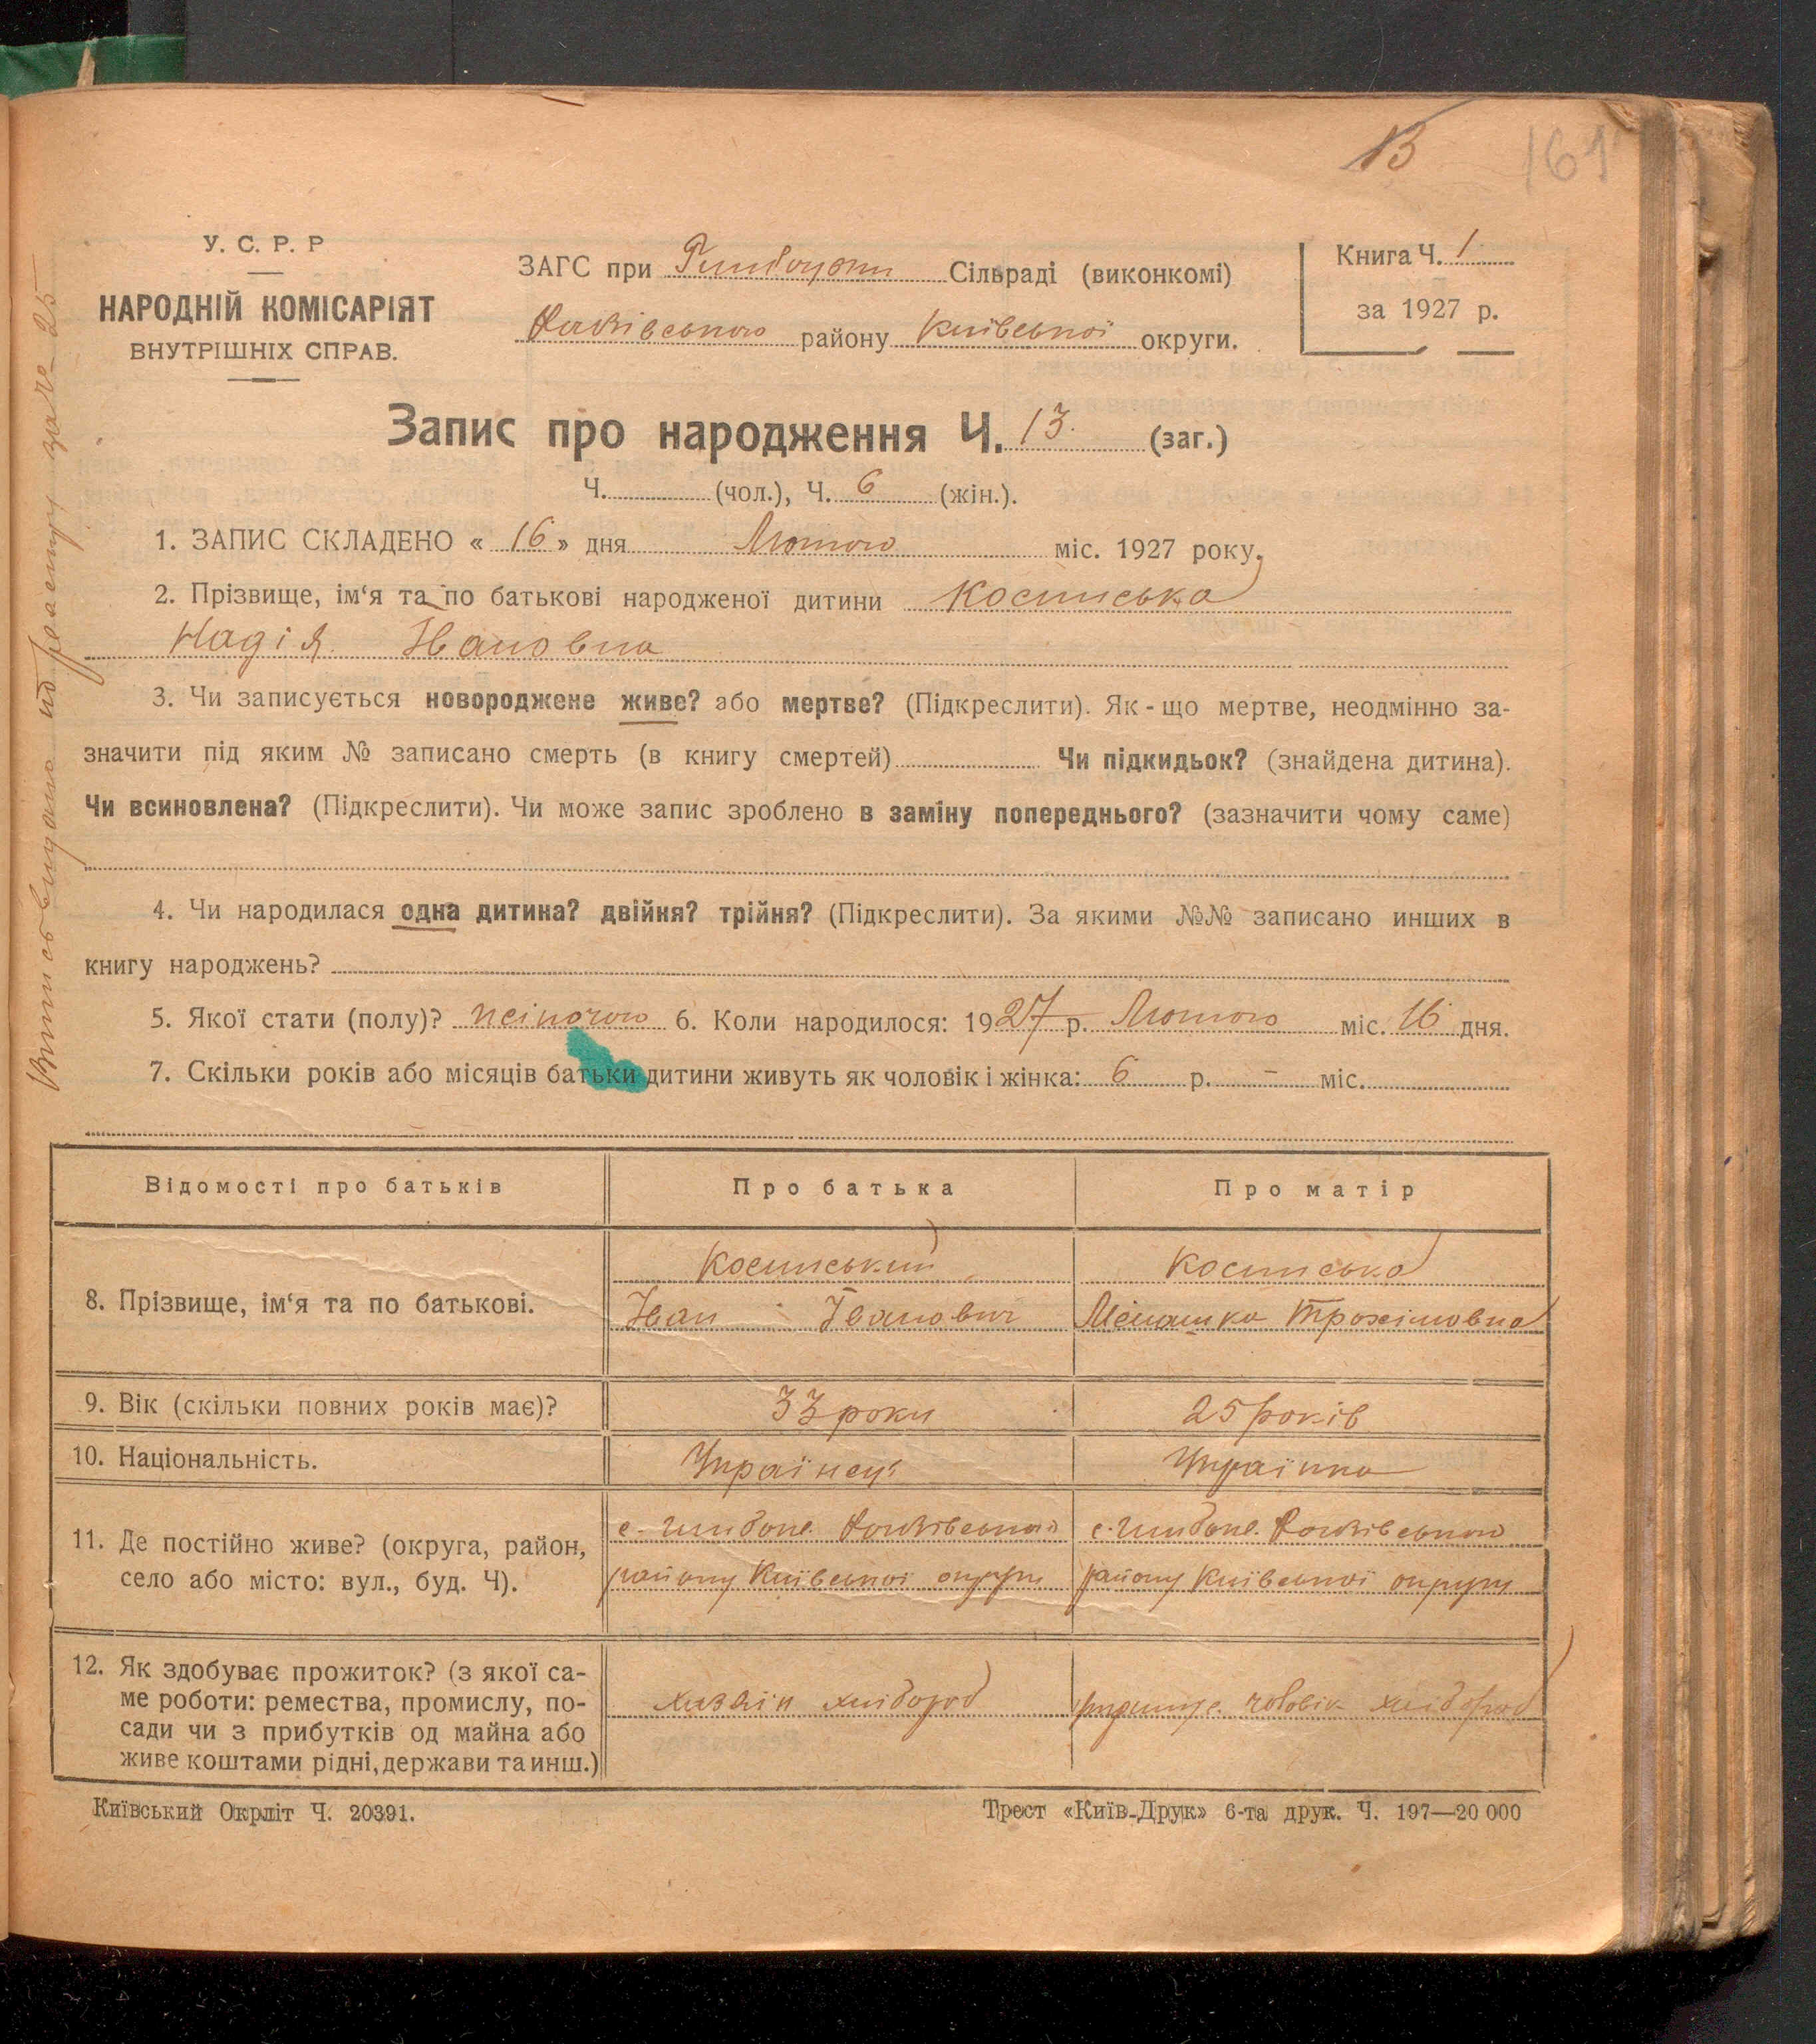 13
161
У. С. Р. Р
НАРОДНІЙ КОМІСАРІЯТ
ВНУТРІШНІХ СПРАВ.
ЗАГС при Сільраді (виконкомі)
району Київської округи.
Книга Ч. 1
за 1927 р.
Запис про народження Ч. 13. (заг.)
Ч. (чол.), Ч. 6 (жін.).
1. ЗАПИС СКЛАДЕНО « 16 » дня Лютого міс. 1927 року.
2. Прізвище, ім‘я та по батькові народженої дитини Косинська
Надія Івановна
3. Чи записується новороджене живе? або мертве? (Підкреслити). Як-що мертве, неодмінно за-
значити під яким № записано смерть (в книгу смертей) Чи підкидьок? (знайдена дитина).
Чи всиновлена? (Підкреслити). Чи може запис зроблено в заміну попереднього? (зазначити чому саме)
4. Чи народилася одна дитина? двійня? трійня? (Підкреслити). За якими №№ записано инших в
книгу народжень?
5. Якої стати (полу)? жіночого 6. Коли народилося: 1927 р. Лютого міс. 16 дня.
7. Скільки років або місяців батьки дитини живуть як чоловік і жінка: 6 р. - міс.
Відомості про батьків Про батька Про матір
8. Прізвище, ім‘я та по батькові.
Косинський Косинська
Іван Іванович Трохімовна
9. Вік (скільки повних років має)? 33 роки 25 років
10. Національність. Українець Українка
11. Де постійно живе? (округа, район,
село або місто: вул., буд. Ч).
с.
району Київської округи
с.
району Київської округи
12. Як здобуває прожиток? (з якої са-
ме роботи: ремества, промислу, по-
сади чи з прибутків од майна або
живе коштами рідні, держави та инш.)
хазяїн хлібороб
чоловік хлібороб
Київський Окрліт Ч. 20391.
Трест «Київ-Друк» 6-та друк. Ч. 197—20 000